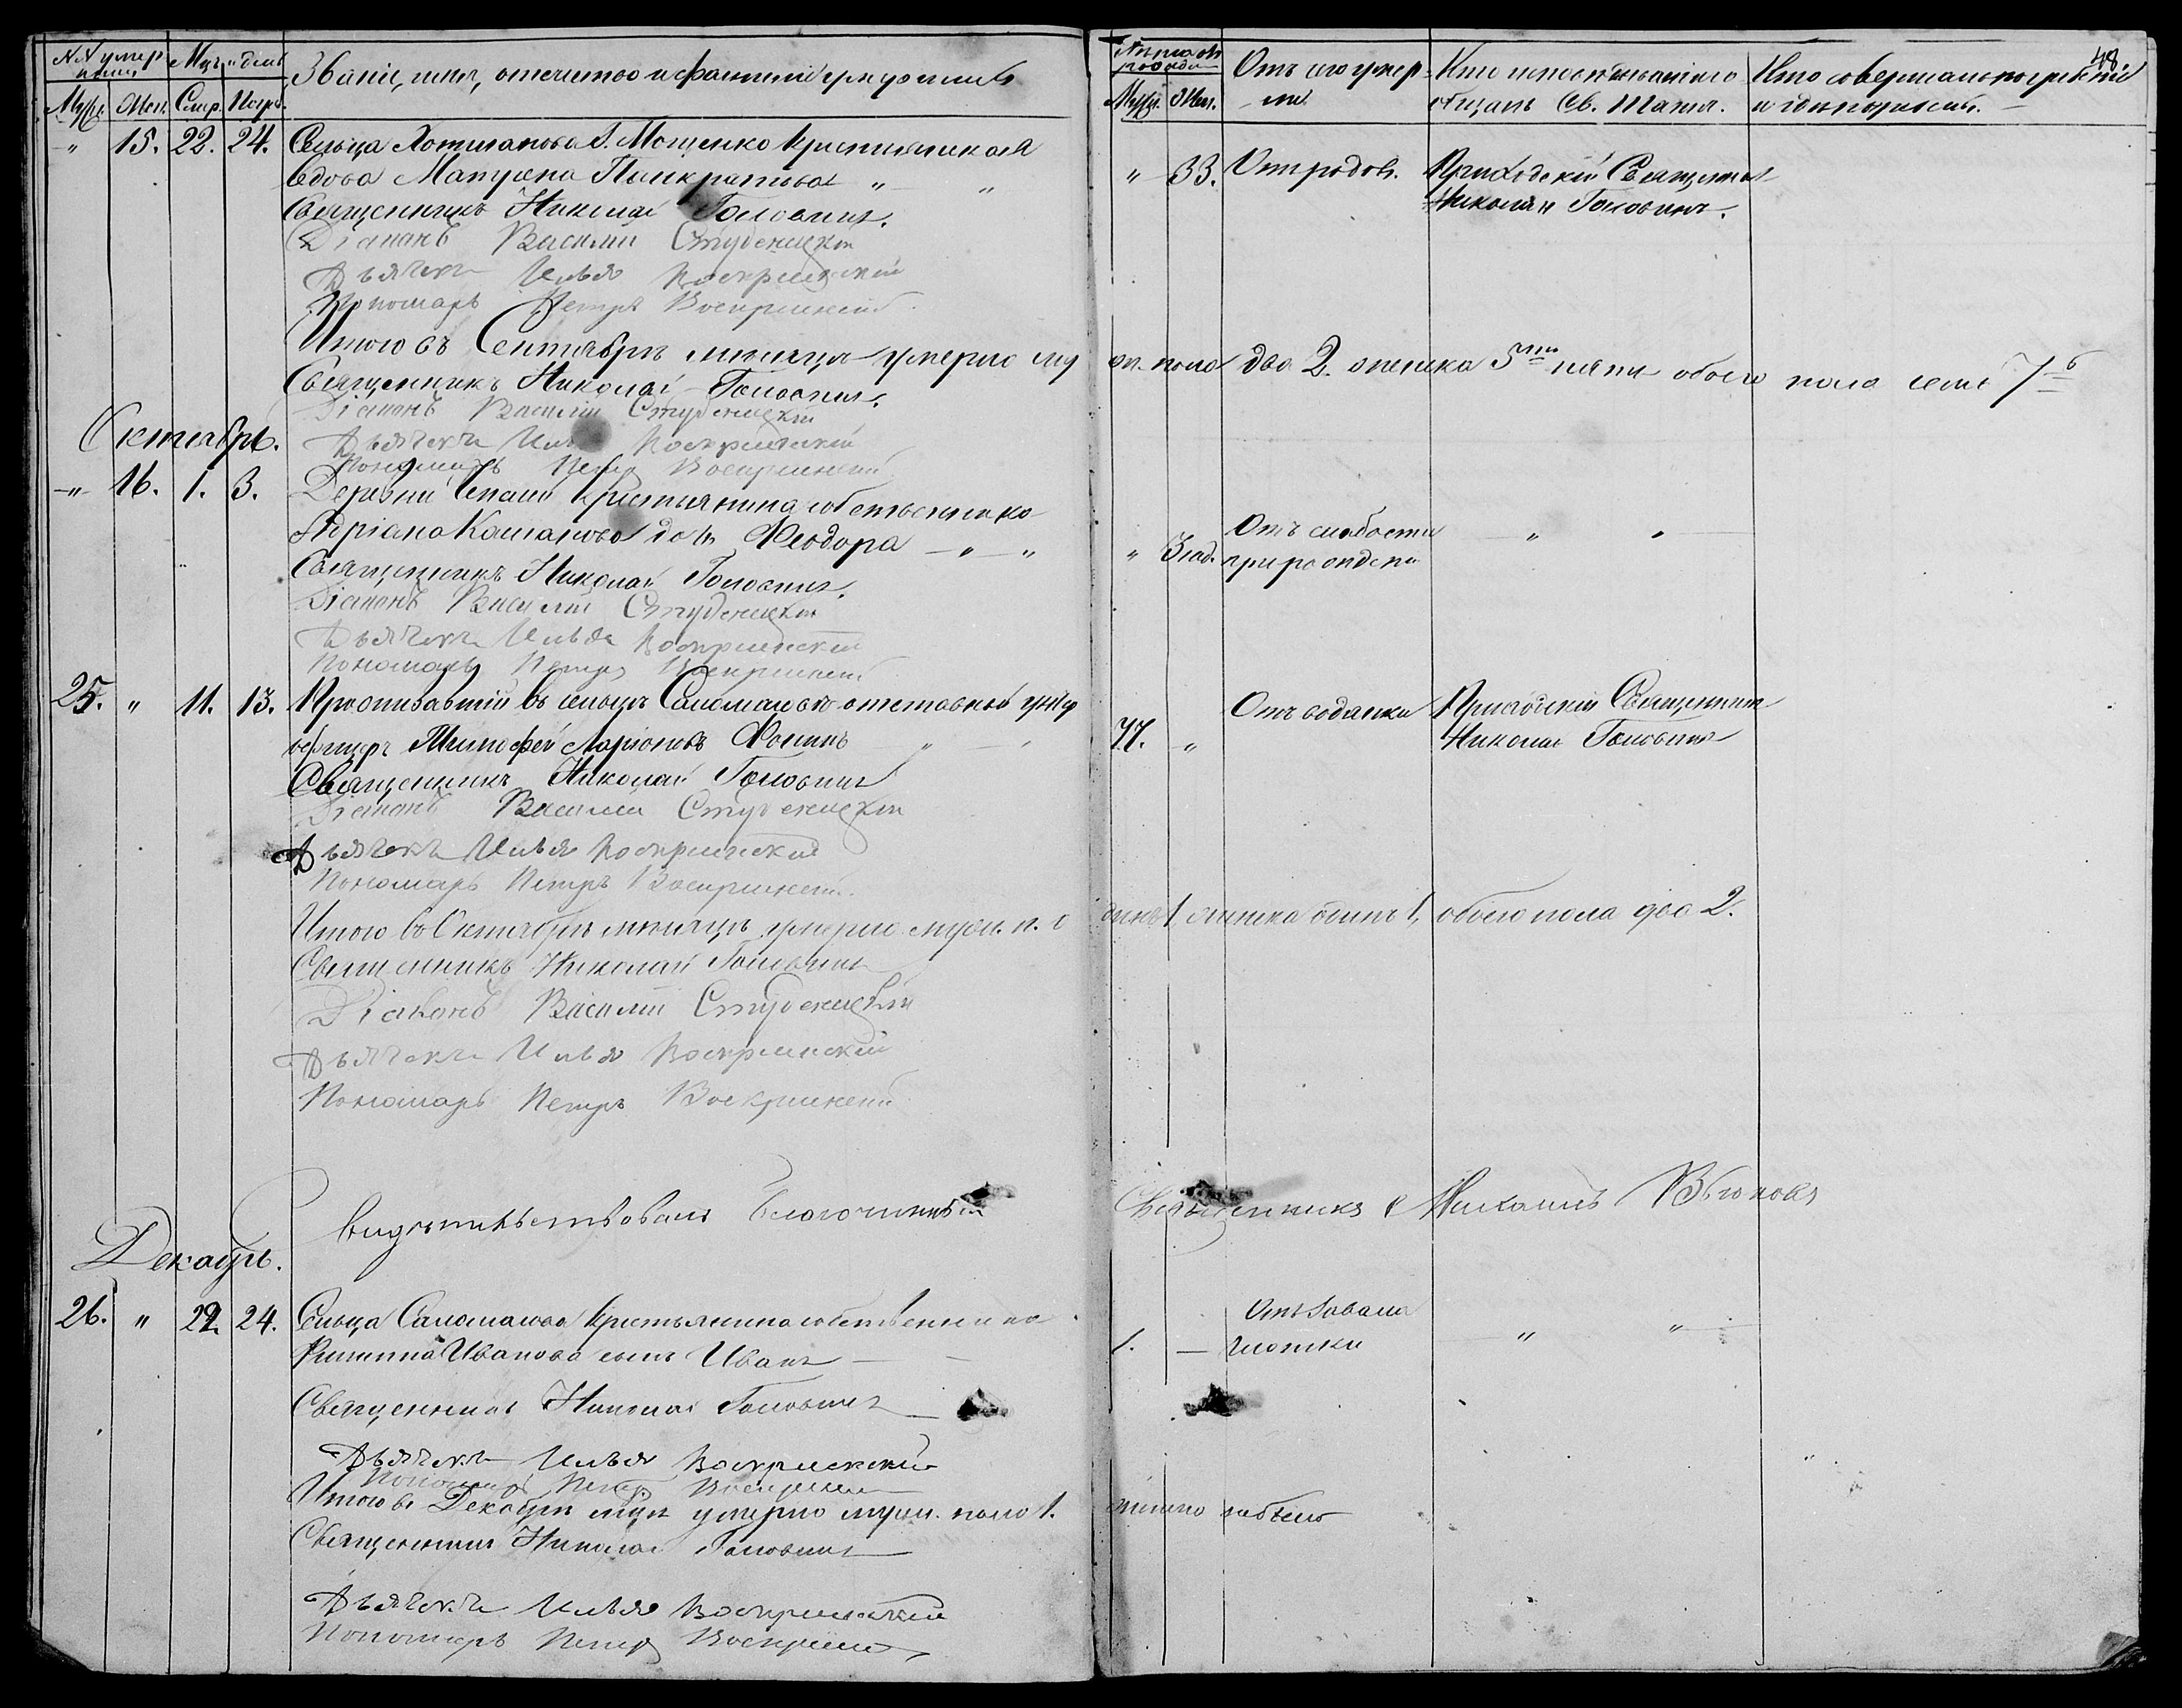 №№ умер- Мцъ и день Званіе, имя, отечество и фамилія умершихъ
шихъ
Муж. Жен. Смер. Погр.
" 15. 22. 24. Сельца Хотиганова Г. Мощенко крестьянская
вдова Матрена Панкратьева " "
Священникъ Николай Головинъ.
Діаконъ Василій Студеницкій
Дьячекъ Илья Воскресенскій
Пономарь Петръ Воскресенскій
Итого въ Сентябрѣ мѣсяцѣ умерло му
Священникъ Николай Головинъ.
Діаконъ Василій Студеницкій
Октябрь.
Дьячекъ Илья Воскресенскій
Пономарь Петръ Воскресенскій
" 16. 1. 3. Деревни крестьянина собственника
Адріана дочь Ѳеодора " "
Священникъ Николай Головинъ.
Діаконъ Василій Студеницкій
Дьячекъ Илья Воскресенскій
Пономарь Петръ Воскресенскій
25. " 11. 13. Проживавшій въ сельцѣ Саломанове отставный унтер
офицеръ Тимофей Ларіоновъ Фокинъ " "
Священникъ Николай Головинъ
Діаконъ Василій Студеницкій
Дьячекъ Илья Воскресенскій
Пономарь Петръ Воскресенскій
Итого въ Октябрѣ мѣсяцѣ умерло муж. п. о
Священникъ Николай Головинъ
Діаконъ Василій Студеницкій
Дьячекъ Илья Воскресенскій
Пономарь Петръ Воскресенскій
свидѣтельствовалъ Благочинный
Декабрь.
26. " 22. 24. Сельца Саломанова крестьянина собственника
Филиппа Иванова сынъ Иванъ
Священникъ Николай Головинъ
Дьячекъ Илья Воскресенскій
Пономарь Петръ Воскресен
Итого въ Декабрѣ мцѣ умерло муж. пола 1.
Священникъ Николай Головинъ
Дьячекъ Илья Воскресенскій
Пономарь Петръ Воскресен
48
Отъ чего умер- Кто исповѣдывалъ и Кто совершалъ погребеніе
ли пріобщалъ Св. Таинъ. и гдѣ погребены.
Муж. Жен.
" 33. Отъ родовъ. Приходскій Священникъ
Николай Головинъ.
ж. пола два 2. женска 5ть пяти обоего пола семь 7ь
" 3 год. Отъ слабости " "
природной
77. " Отъ водянки Приходскій Священникъ
Николай Головинъ
динъ 1, женска одинъ 1, обоего пола два 2.
Священникъ Михаилъ
1. — Отъ завала " "
глотки
женска небыло